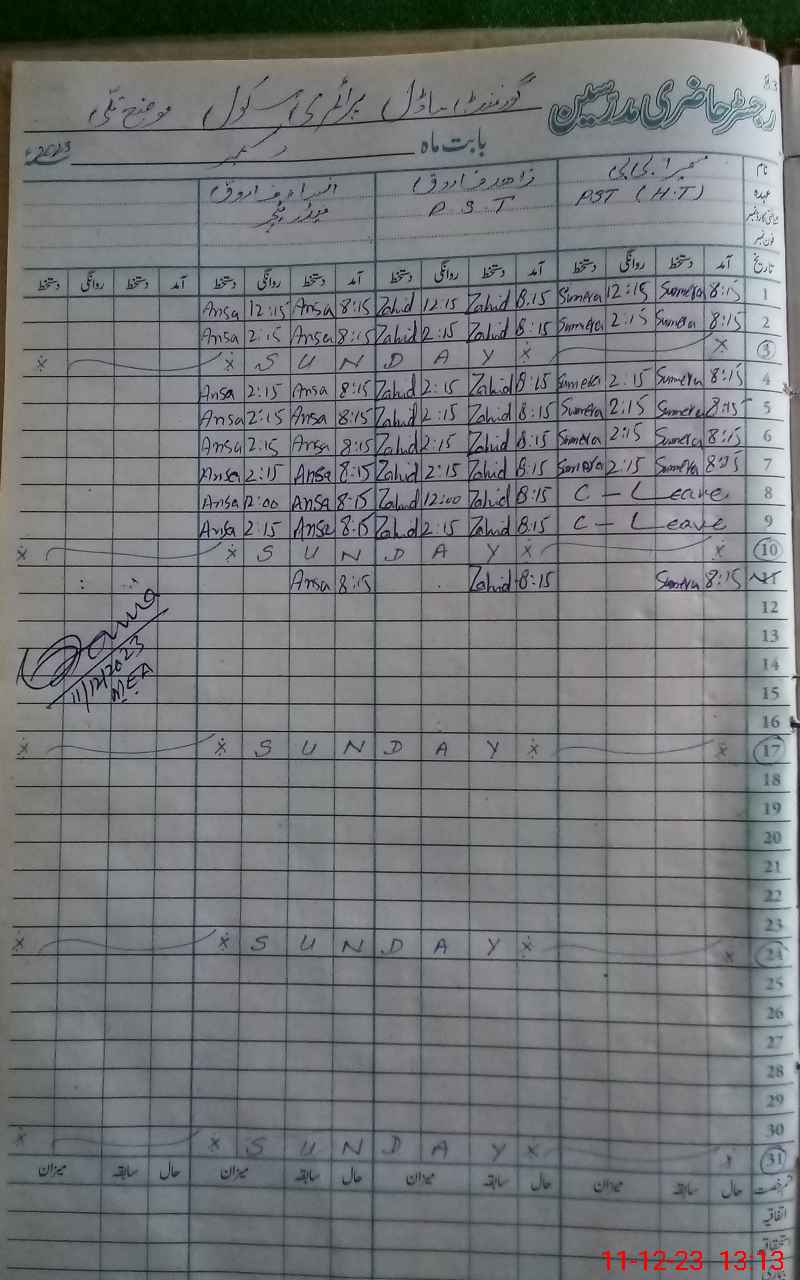 83
رجسٹر حاضری مدرسین
گورنمنٹ ماڈل پرائمری سکول موضع
بابت ماہ دسمبر 2023ء
نام سمیرا بی بی زاھد فاروق
عہدہ PST (H.T) P S T
فون نمبر
تاریخ آمد دستخط روانگی دستخط آمد دستخط روانگی دستخط آمد دستخط روانگی دستخط آمد دستخط روانگی دستخط
1 8:15 Sumera 12:15 Sumera 8:15 Zahid 12:15 Zahid 8:15 Ansa 12:15 Ansa
2 8:15 Sumera 2:15 Sumera 8:15 Zahid 2:15 Zahid 8:15 Ansa 2:15 Ansa
3 SUNDAY
4 8:15 Sumera 2:15 Sumera 8:15 Zahid 2:15 Zahid 8:15 Ansa 2:15 Ansa
5 8:15 Sumera 2:15 Sumera 8:15 Zahid 2:15 Zahid 8:15 Ansa 2:15 Ansa
6 8:15 Sumera 2:15 Sumera 8:15 Zahid 2:15 Zahid 8:15 Ansa 2:15 Ansa
7 8:15 Sumera 2:15 Sumera 8:15 Zahid 2:15 Zahid 8:15 Ansa 2:15 Ansa
8 C - Leave 8:15 Zahid 12:00 Zahid 8:15 Ansa 12:00 Ansa
9 C - Leave 8:15 Zahid 2:15 Zahid 8:15 Ansa 2:15 Ansa
10 SUNDAY
11 8:15 Sumera 8:15 Zahid 8:15 Ansa
12
13
14
15
16
11/12/2023
MEA
17 SUNDAY
18
19
20
21
22
23
24 SUNDAY
25
26
27
28
29
30
31 SUNDAY
قسم رخصت حال سابقہ میزان حال سابقہ میزان حال سابقہ میزان حال سابقہ میزان
اتفاقیہ
استحقاقیہ
11-12-23 13:13